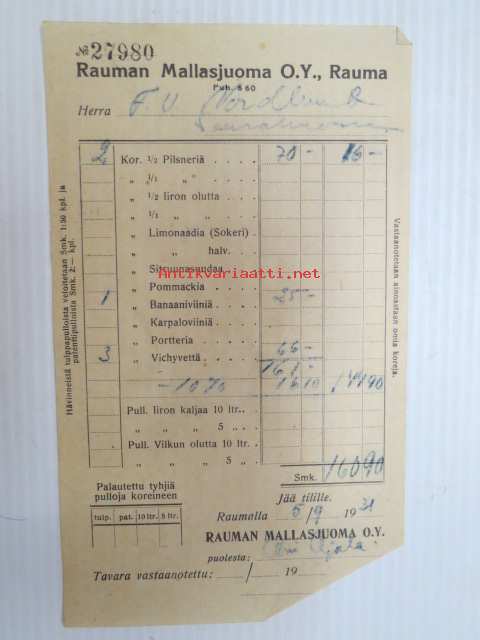 № 27980
Rauman Mallasjuoma O.Y., Rauma
Puh. 560
Herra F. V. Nordlund
2 Kor. 1/2 Pilsneriä . . . . 70 - 16 -
„ 1/1 „ . . . .
„ 1/2 Iiron olutta . . .
„ 1/1 „ „ . . .
„ Limonaadia (Sokeri) .
„ „ halv. . .
„ Sitruunasuudaa
antikvariaatti.net
1 „ Pommackia . . . . 25 -
„ Banaaniviiniä . . .
„ Karpaloviiniä . . .
„ Portteria . . . .
3 „ Vichyvettä . . . . 66 -
161 -
- 10 % 16 10 144 90
Pull. Iiron kaljaa 10 ltr. . .
„ „ „ 5 „ . .
Pull. Vilkun olutta 10 ltr. .
„ „ „ 5 „ . .
Smk. 160 90
Hävinneistä tulppapulloista veloitetaan Smk. 1:50 kpl. ja
patenttipulloista Smk. 2:— kpl.
Vastaanotetaan ainoastaan omia koreja.
Palautettu tyhjiä
pulloja koreineen
tulp. pat. 10 ltr. 5 ltr.
Jää tilille.
Raumalla 5/9 1931
RAUMAN MALLASJUOMA O.Y.
puolesta:
Tavara vastaanotettu: / 19